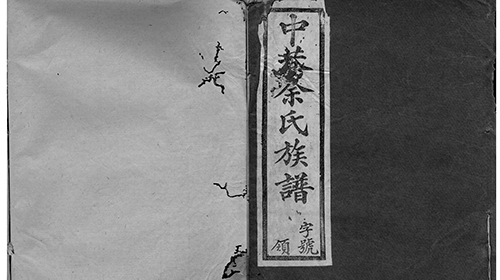 中蔡余氏族譜
字號
領